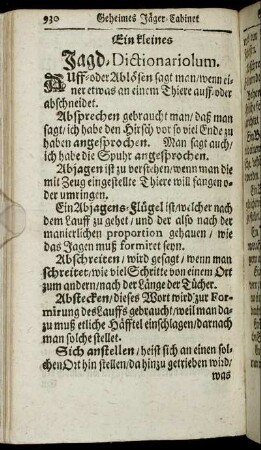 930 Geheimes Jäger-Cabinet
Ein kleines
Jagd-Dictionariolum.
AUff- oder Ablösen sagt man/wenn ei-
ner etwas an einem Thiere auff- oder
abschneidet.
Absprechen gebraucht man/ daß man
sagt/ ich habe den Hirsch vor so viel Ende zu
haben angesprochen. Man sagt auch/
ich habe die Spuhr angesprochen.
Abjagen ist zu verstehen/wenn man die
mit Zeug eingestellte Thiere will fangen o-
der umringen.
Ein Abjagens-Flügel ist/welcher nach
dem Lauff zu gehet/ und der also nach der
manierlichen proportion gehauen/ wie
das Jagen muß formiret seyn.
Abschreiten/ wird gesagt/ wenn man
schreitet/ wie viel Schritte von einem Ort
zum andern/nach der Länge der Tücher.
Abstecken/ dieses Wort wird zur For-
mirung des Lauffs gebraucht/weil man da-
zu muß etliche Häfftel einschlagen/darnach
man solche stellet.
Sich anstellen/ heist sich an einen sol-
chen Ort hin stellen/da hinzu getrieben wird/
was